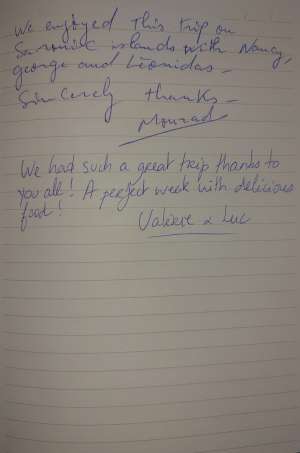 we enjoyed This trip on
Saronic islands with Nancy,
george and Leonidas -
Sincerely thanks -
Mourad
We had such a great trip thanks to
you all! A perfect week with delicious
food!
Valérie & Luc